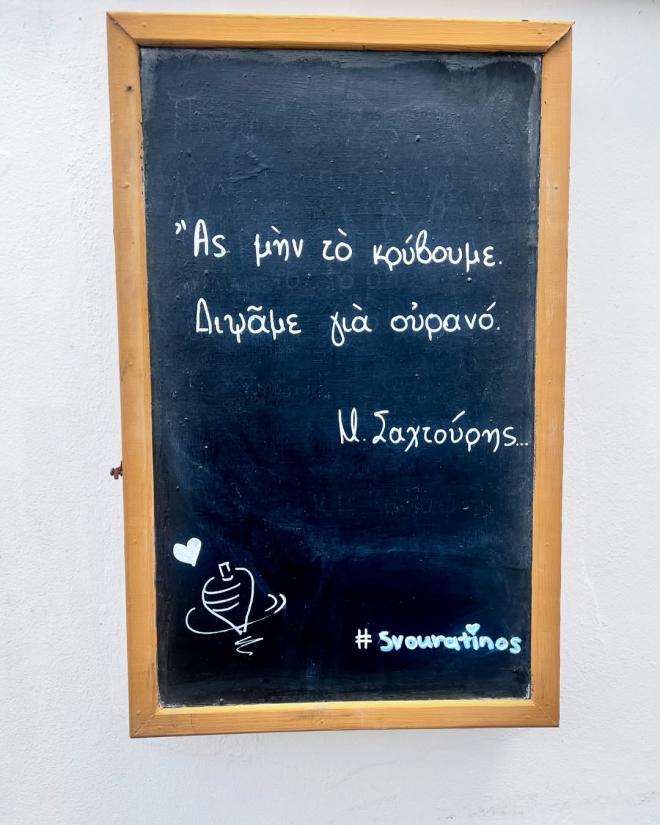 "Ας μὴν τὸ κρύβουμε.
Διψᾶμε γιὰ οὐρανό.
Μ. Σαχτούρης...
#svouratinos